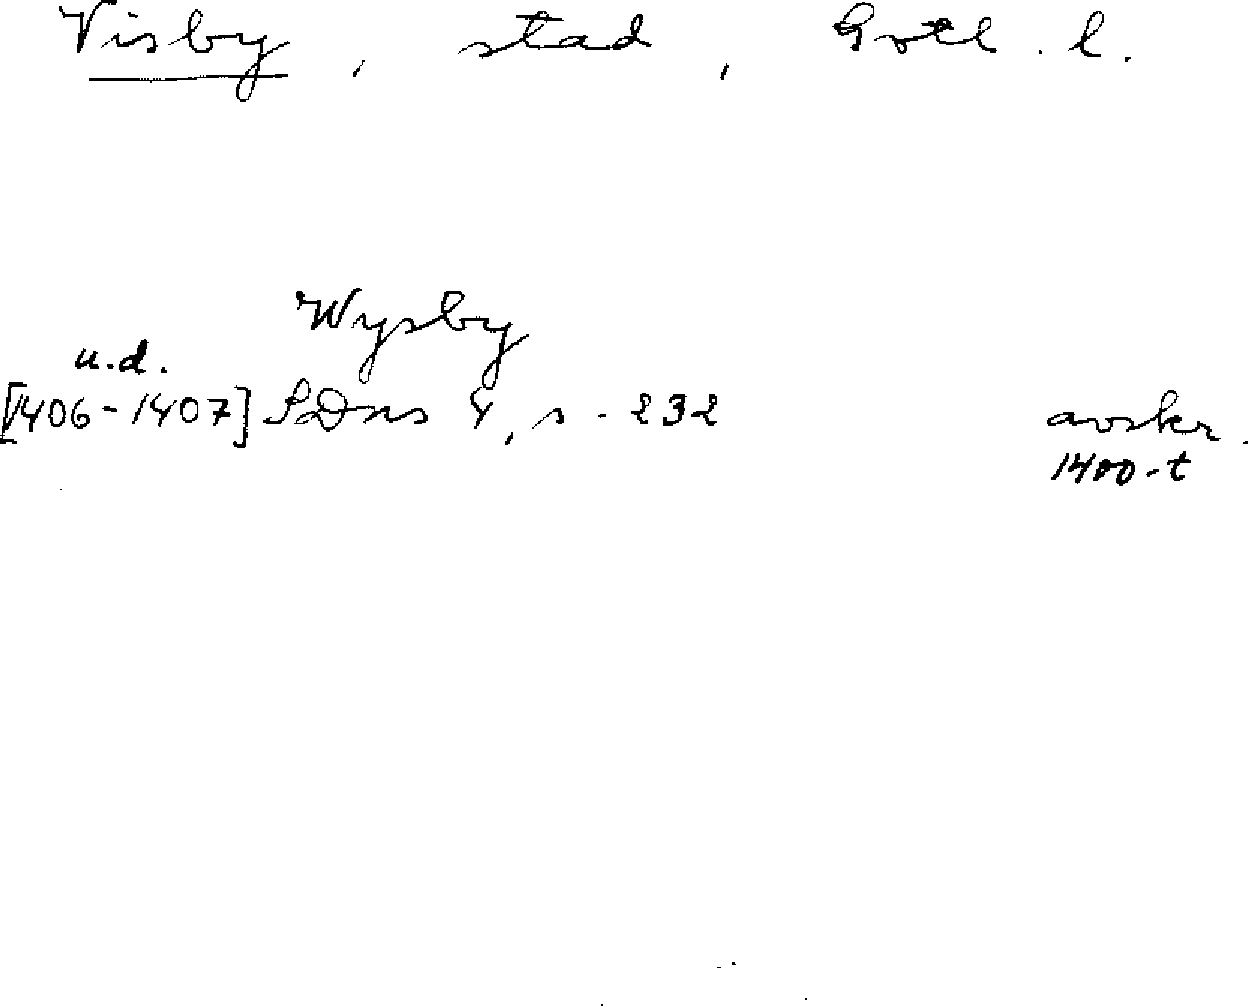 Visby, stad, Gotl. l.
Wysby
u.d.
[1406-1407] SDns 4, s. 232 avskr.
1400-t